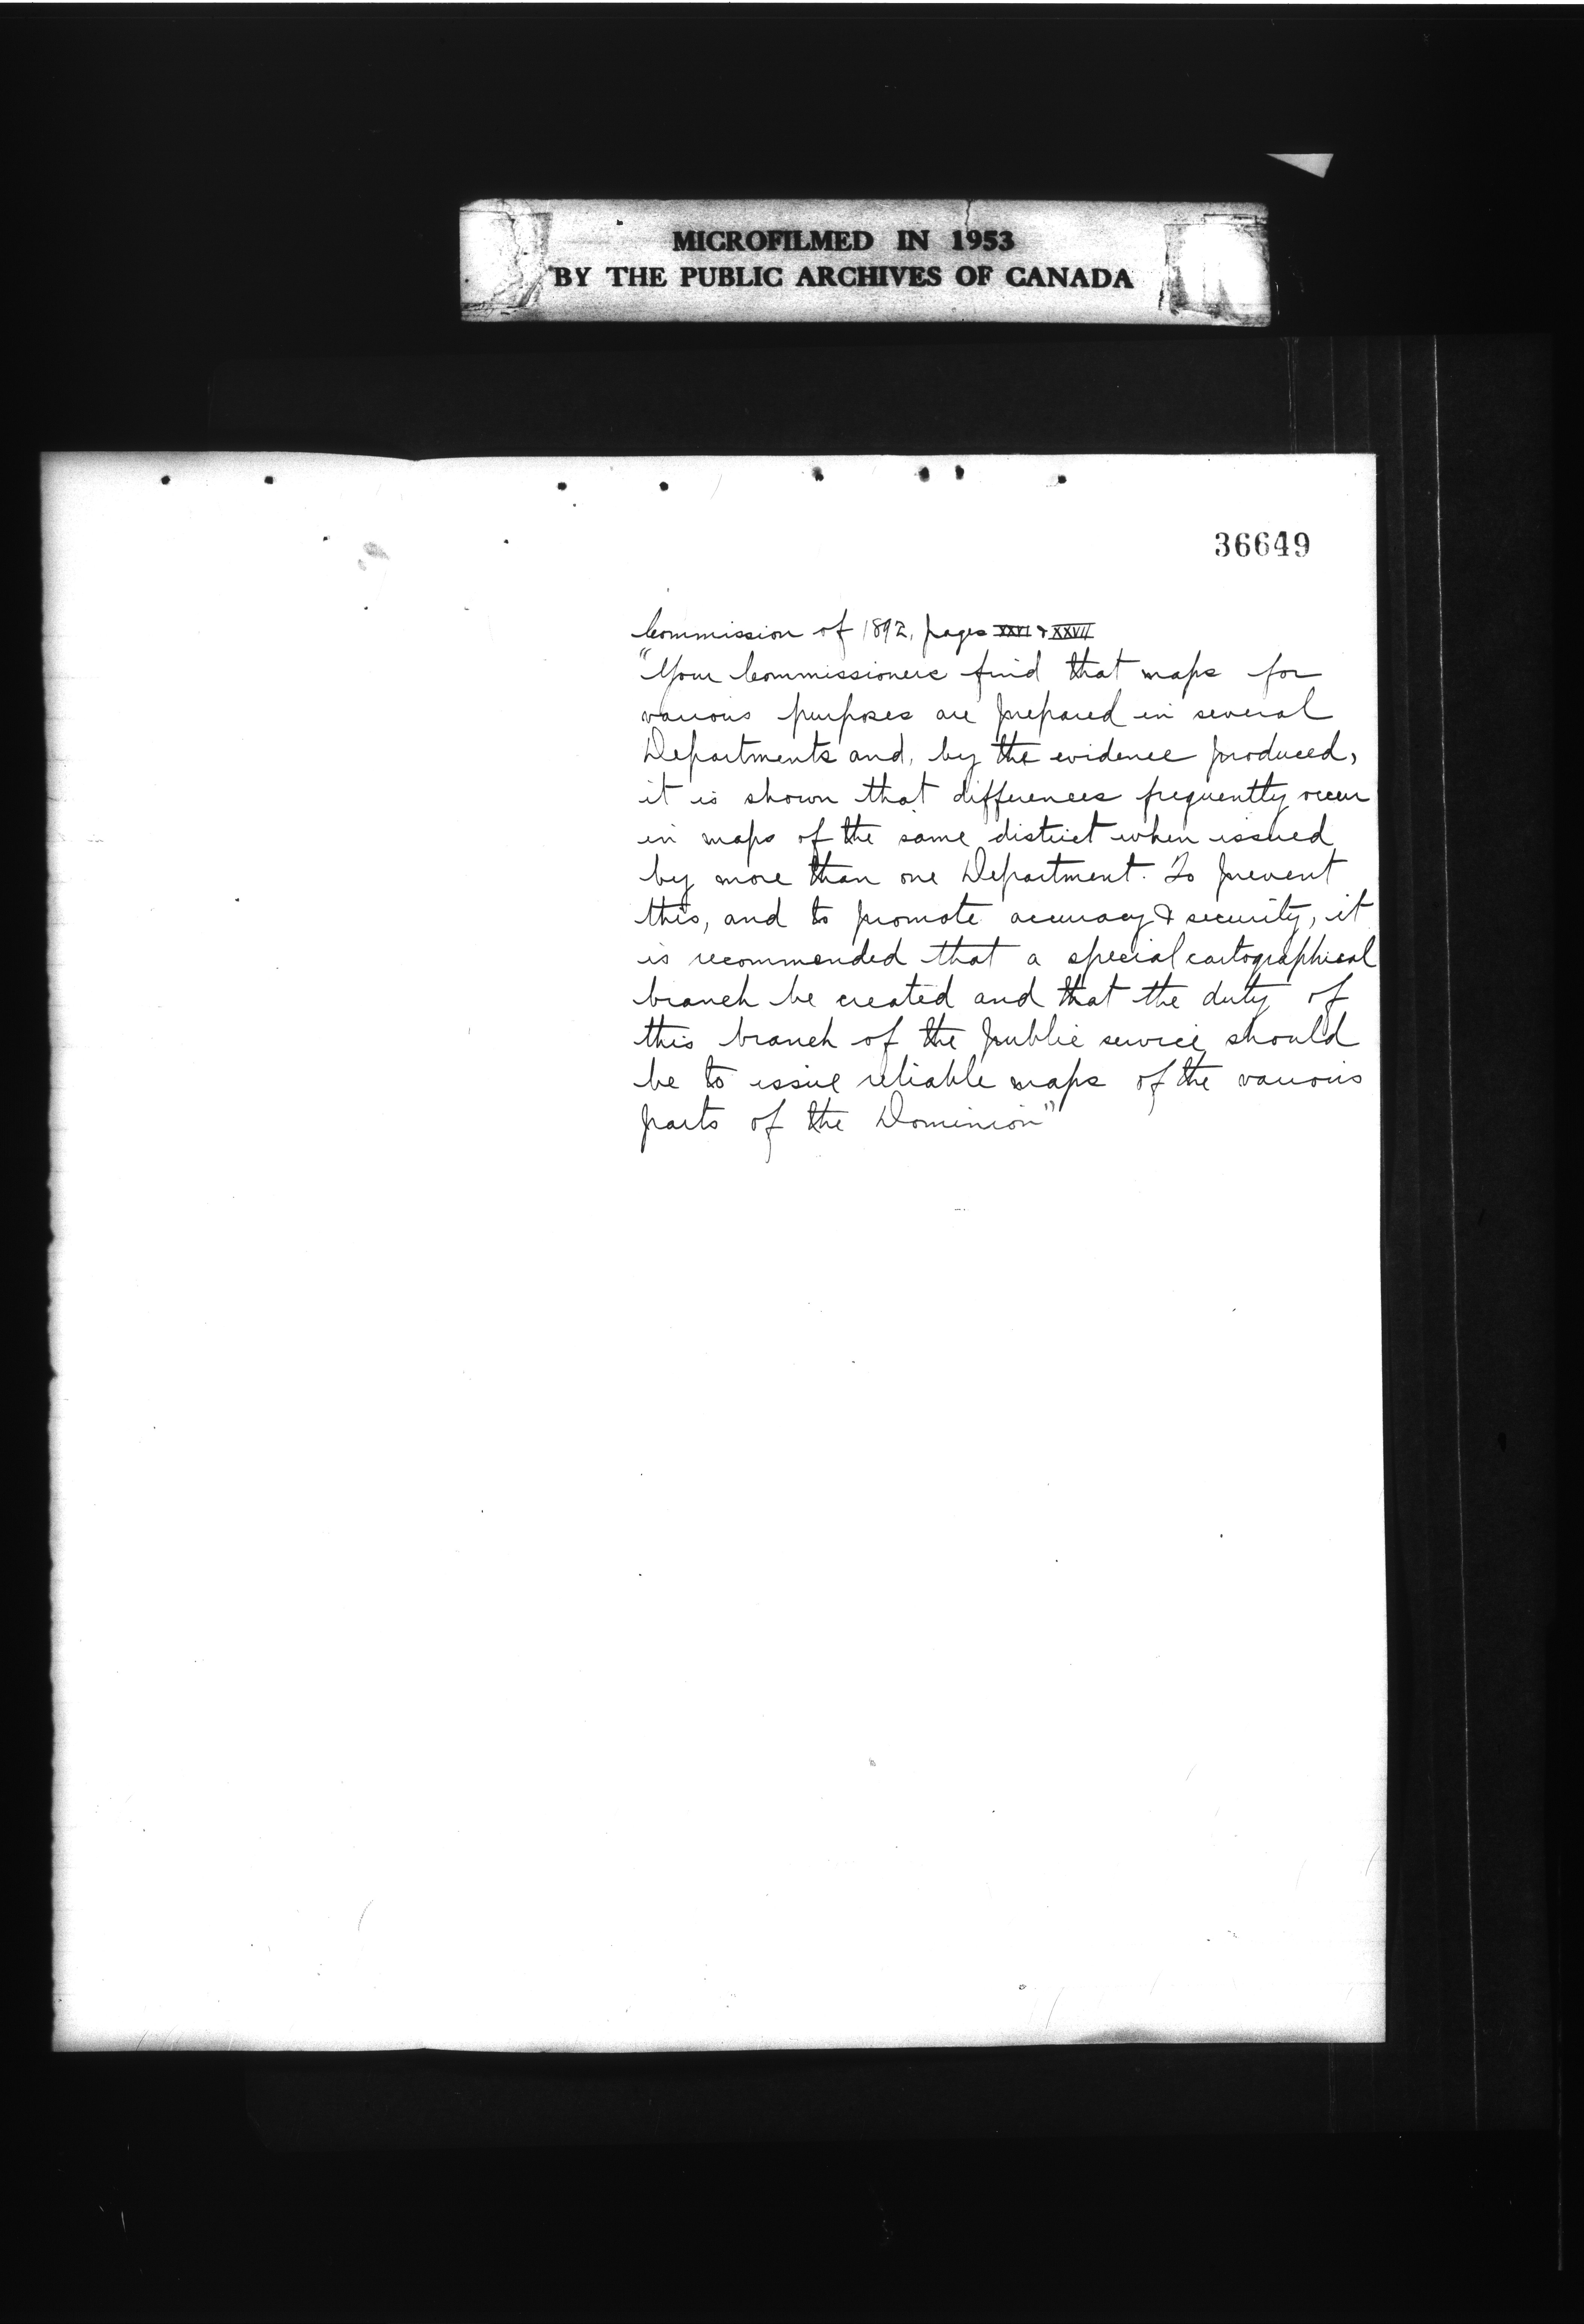 MICROFILMED IN 1953
BY THE PUBLIC ARCHIVES OF CANADA
36649
Commission of 1892, pages XXVI & XXVII
"Your Commissioners find that maps for
various purposes are prepared in several
Departments and, by the evidence produced,
it is shown that differences frequently occur
in maps of the same district when issued
by more than one Department. To prevent
this, and to promote accuracy & security, it
is recommended that a special cartographical
branch be created and that the duty of
this branch of the public service should
be to issue reliable maps of the various
parts of the Dominion"